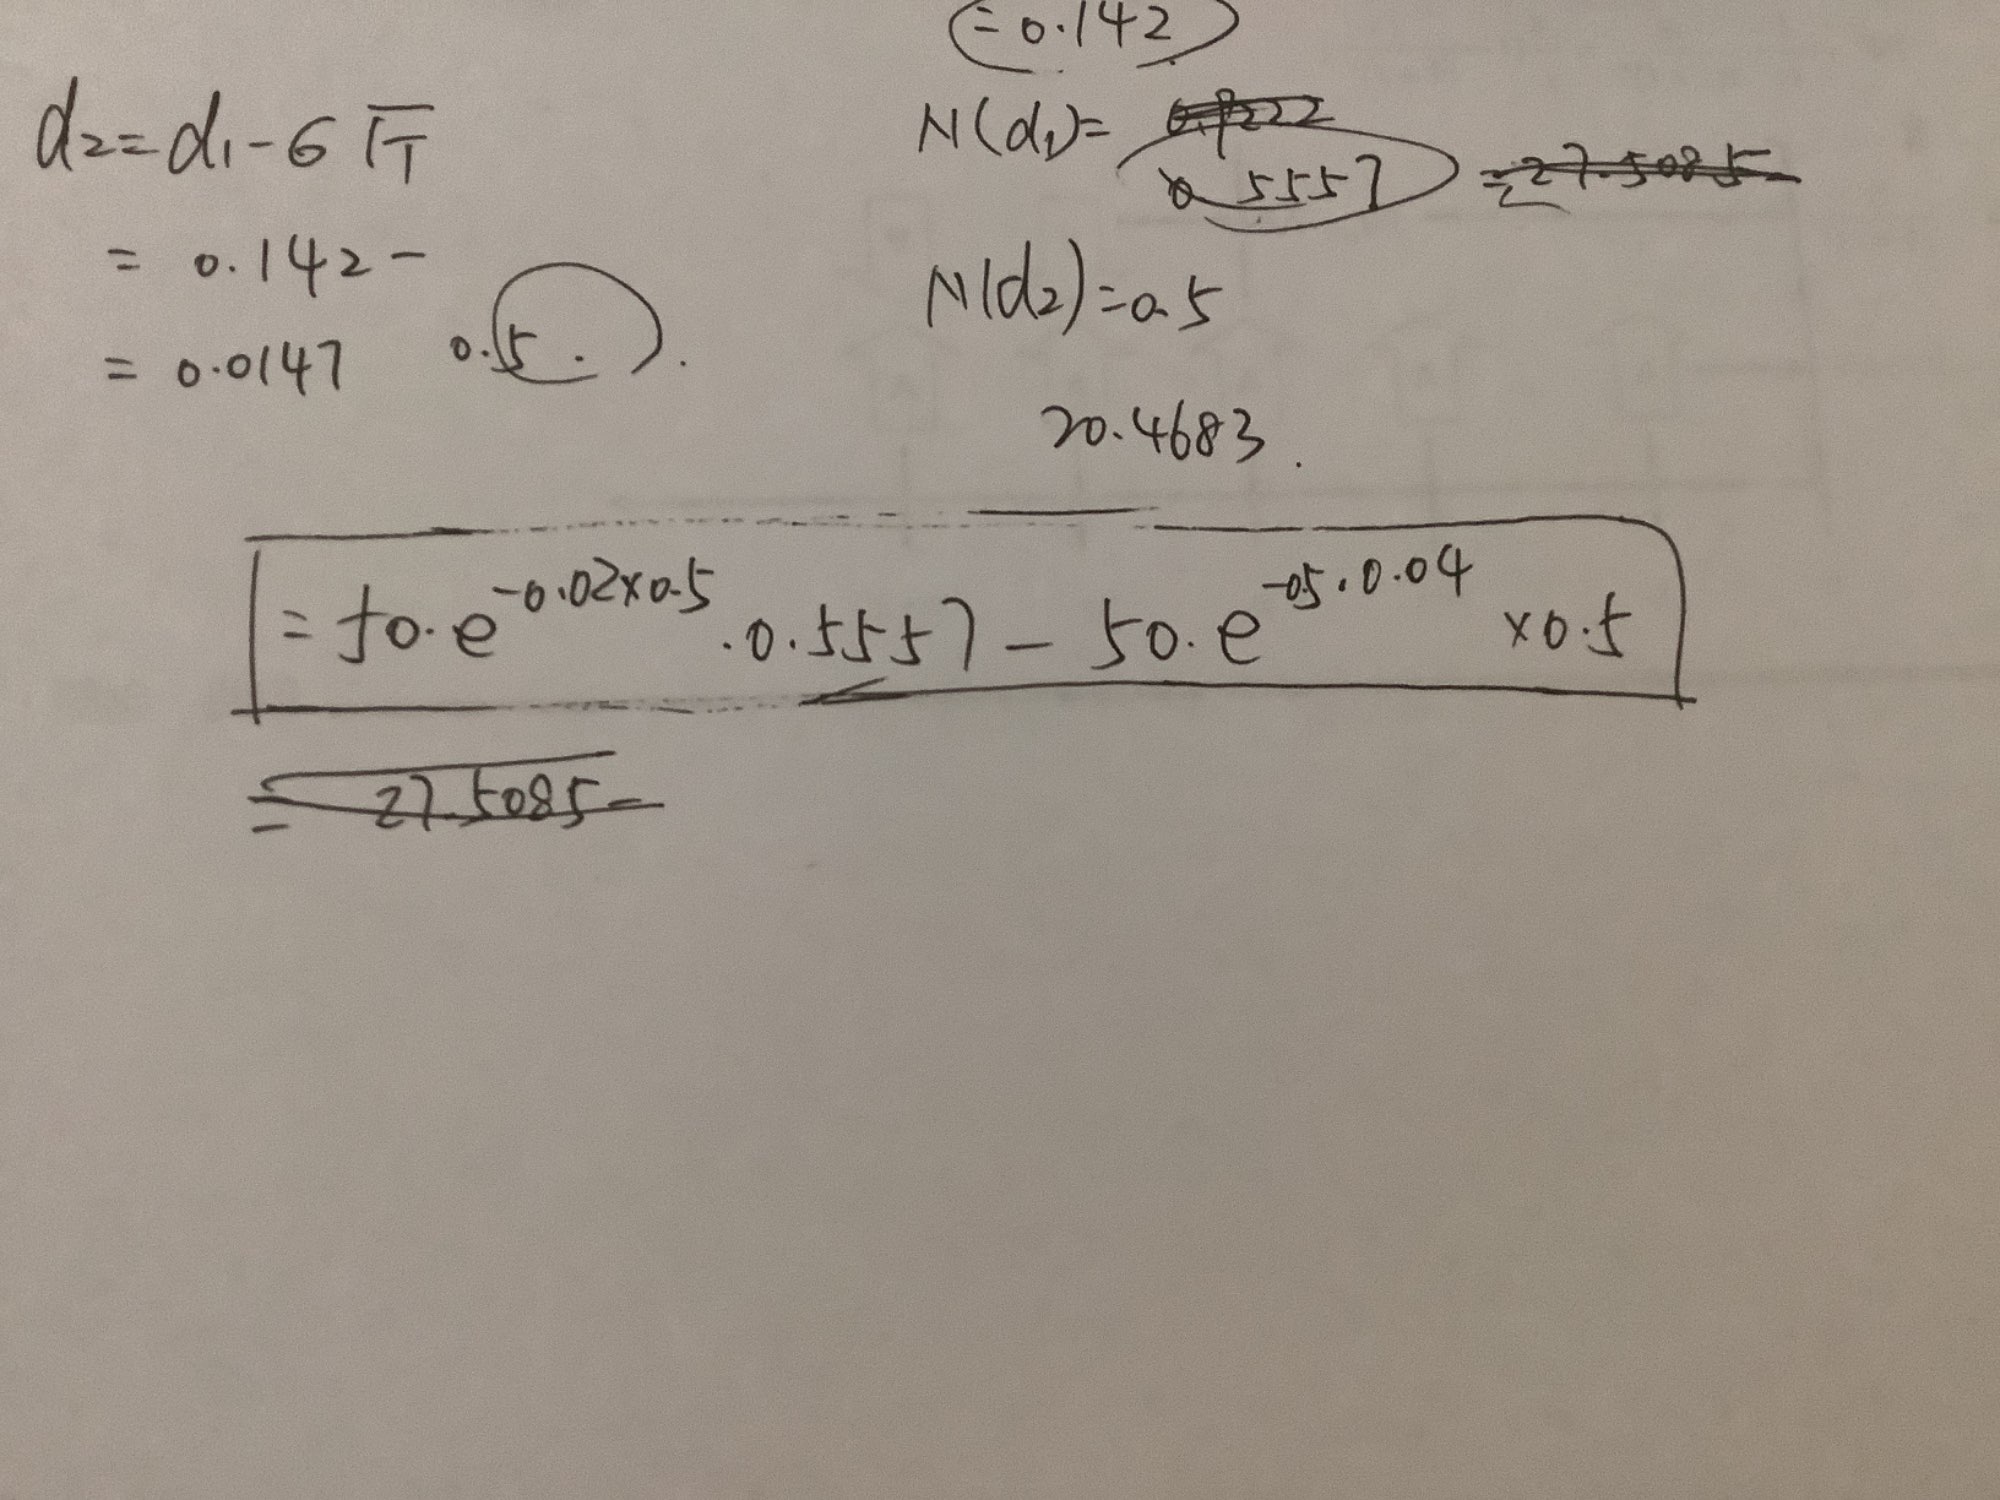 = 0.142
d₂ = d₁ - σ√T
= 0.142 -
= 0.0147 0.5 .
N(d₁) =
0.5557 = 27.5085
N(d₂) = 0.5
20.4683 .
= 50.e^{-0.02×0.5} . 0.5557 - 50.e^{-0.5.0.04} × 0.5
= 27.5085